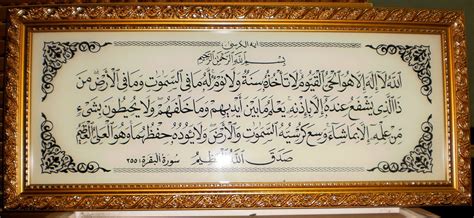 آية الكرسى
بِسْمِ اللَّهِ الرَّحْمَنِ الرَّحِيمِ
اللَّهُ لَا إِلَهَ إِلَّا هُوَ الْحَيُّ الْقَيُّومُ لَا تَأْخُذُهُ سِنَةٌ وَلَا نَوْمٌ لَهُ مَا فِي السَّمَوَاتِ وَمَا فِي الْأَرْضِ مَنْ
ذَا الَّذِي يَشْفَعُ عِنْدَهُ إِلَّا بِإِذْنِهِ يَعْلَمُ مَا بَيْنَ أَيْدِيهِمْ وَمَا خَلْفَهُمْ وَلَا يُحِيطُونَ بِشَيْءٍ
مِنْ عِلْمِهِ إِلَّا بِمَا شَاءَ وَسِعَ كُرْسِيُّهُ السَّمَوَاتِ وَالْأَرْضَ وَلَا يَؤُودُهُ حِفْظُهُمَا وَهُوَ الْعَلِيُّ الْعَظِيمُ
صَدَقَ اللَّهُ الْعَظِيمُ سورة البقرة ٢٥٥